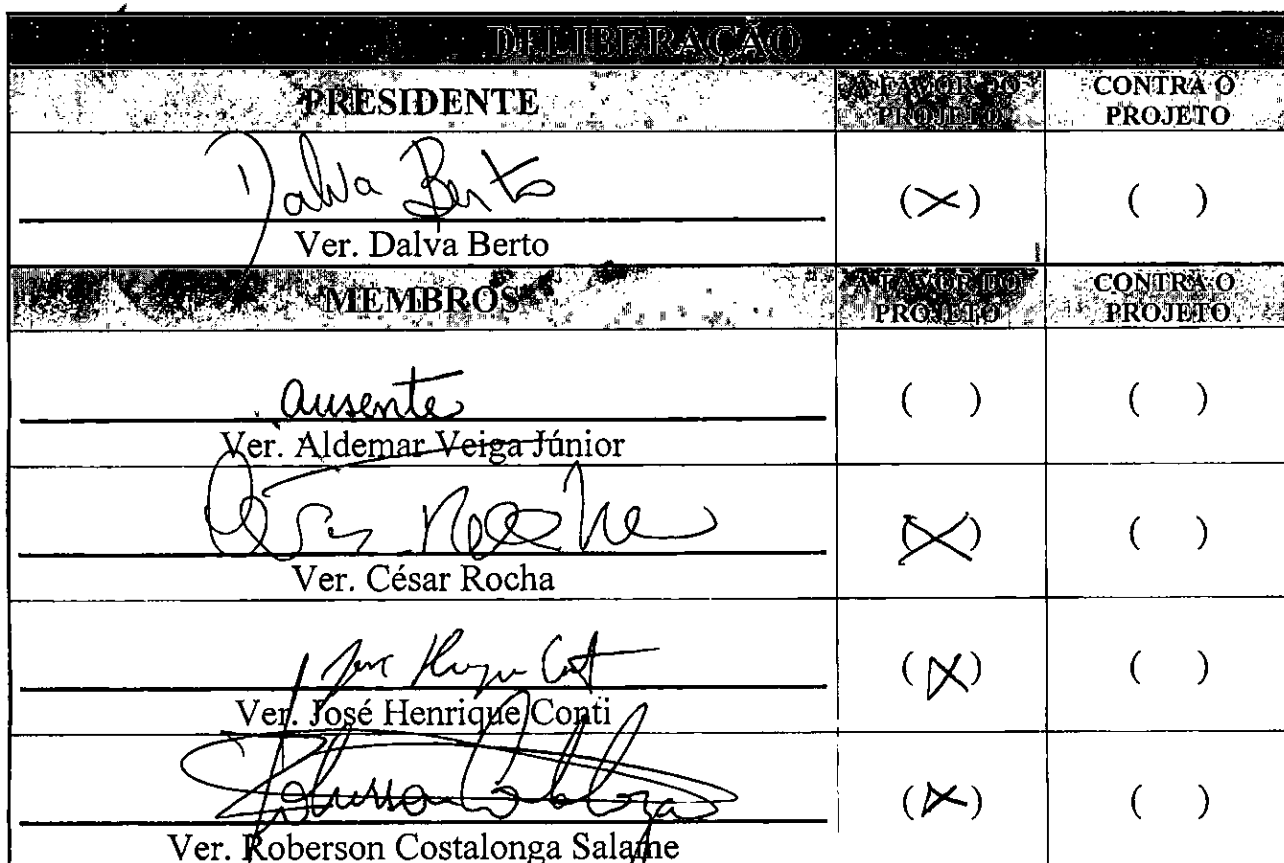 DELIBERAÇÃO
PRESIDENTE
A FAVOR DO PROJETO
CONTRA O PROJETO
Dalva Berto
(X)
( )
Ver. Dalva Berto
MEMBROS
A FAVOR DO PROJETO
CONTRA O PROJETO
ausente
( )
( )
Ver. Aldemar Veiga Júnior
César Rocha
(X)
( )
Ver. César Rocha
(X)
( )
Ver. José Henrique Conti
(X)
( )
Ver. Roberson Costalonga Salame